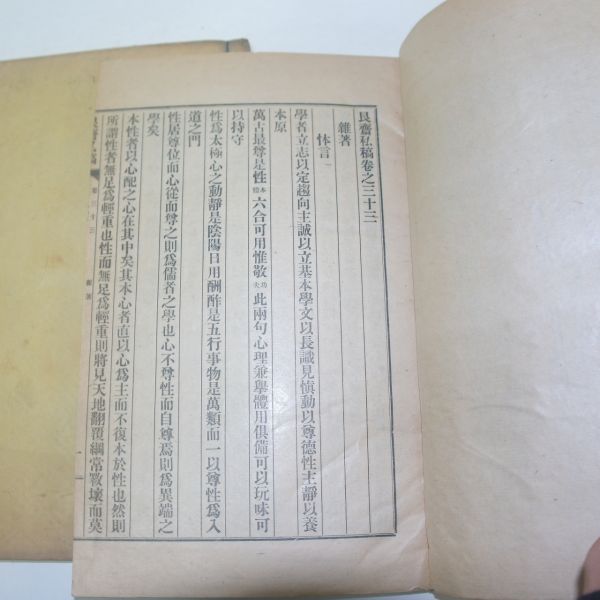 艮齋私稿卷之三十三
雜著
體言
學者立志以定趨向主誠以立基本學文以長識見愼動以尊德性主靜以養
本原
萬古最尊是性本體六合可用惟敬功夫此兩句心理兼擧體用俱備可以玩味可
以持守
性爲太極心之動靜是陰陽日用酬酢是五行事物是萬類而一以尊性爲入
道之門
性居尊位而心從而尊之則爲儒者之學也心不尊性而自尊焉則爲異端之
學矣
本性者以心配之心在其中矣其本心者直以心爲主而不復本於性也然則
所謂性者無足爲輕重也性而無足爲輕重則將見天地翻覆綱常斁壞而莫
艮齋私稿 卷三十三 雜著 一